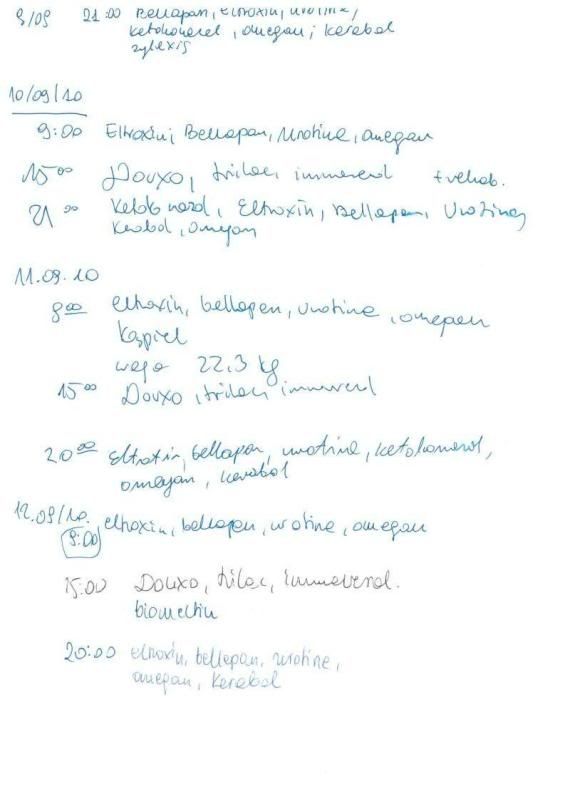 9/09 21:00 Bellapan, eltroxin, urotine,
ketokonerol, omegan, kerabol
zylexis
10/09/10
9:00 Eltroxin, Bellapan, Urotine, omegan
15 00 Douxo, trilac, immunerol + rehab.
21 00 Eltroxin, Bellapan, Urotine,
Kerabol, omegan
11.09.10
8 00 eltroxin, bellapen, urotine, omegan
Kąpiel
waga 22.3 kg
15 00 Douxo, trilac, immunerol
20 00 Eltroxin, bellapan, urotine, ketokonerol,
omegan, kerabol
12.09/10. eltroxin, bellapen, urotine, omegan
9:00
15:00 Douxo, trilac, immunerol.
20:00 eltroxin, bellepan, urotine,
omegan, Kerabol